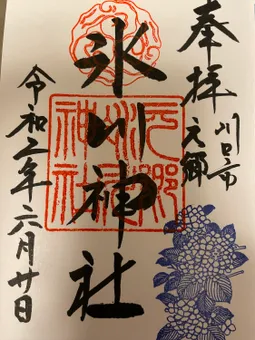 奉拝
川口市
元郷
氷川神社
元郷
氷川
神社
令和二年六月廿日